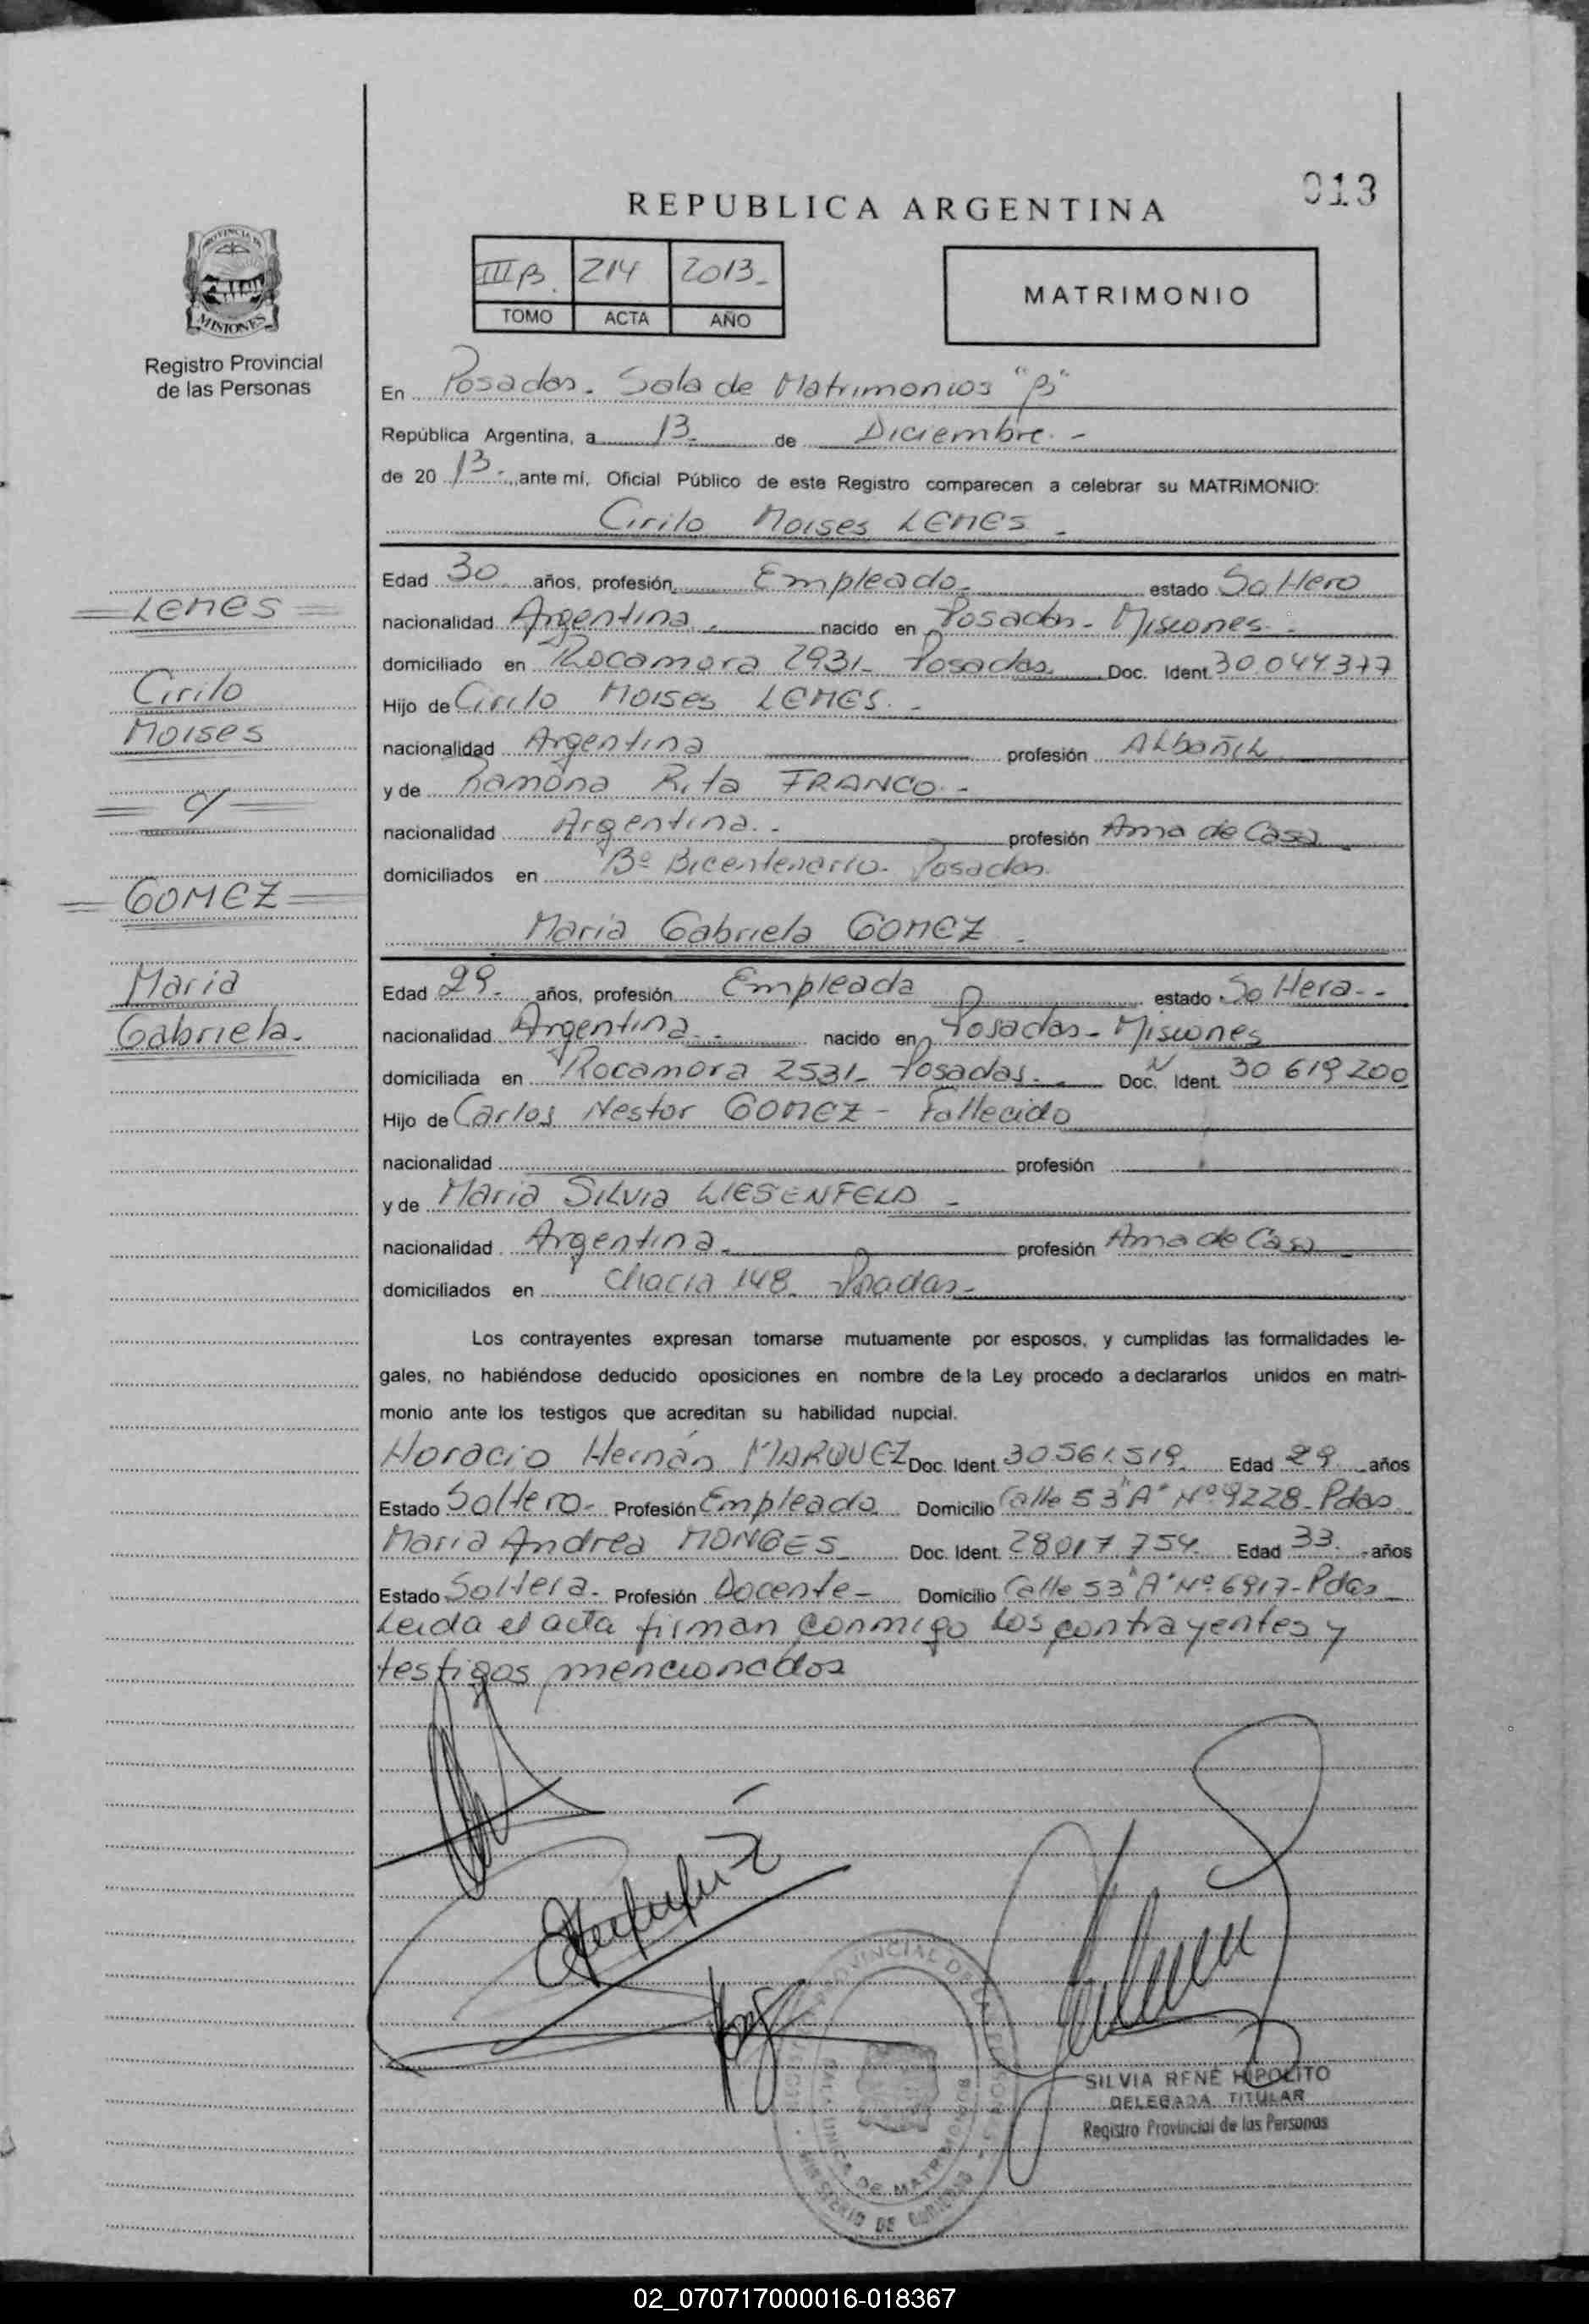 013
REPUBLICA ARGENTINA
PROVINCIA DE
MISIONES
Registro Provincial
de las Personas
III B. 214 2013-
TOMO ACTA AÑO
MATRIMONIO
En Posadas. Sala de Matrimonios "B"
República Argentina, a 13- de Diciembre. -
de 20 13-, ante mí, Oficial Público de este Registro comparecen a celebrar su MATRIMONIO:
Cirilo Moises LEMES -
Edad 30 años, profesión Empleado- estado Soltero
nacionalidad Argentina - nacido en Posadas - Misiones -
domiciliado en Rocamora 2931- Posadas Doc. Ident. 30.044.377
Hijo de Cirilo Moises LEMES. -
nacionalidad Argentina profesión Albañil
y de Ramona Rita FRANCO. -
nacionalidad Argentina. - profesión Ama de Casa
domiciliados en Bº Bicentenario. Posadas.
LEMES
Cirilo
Moises
c/
GOMEZ
Maria
Gabriela.
Maria Gabriela GOMEZ -
Edad 29- años, profesión Empleada estado Soltera - -
nacionalidad Argentina - nacido en Posadas - Misiones
domiciliada en Rocamora 2531- Posadas. - Doc. Ident. 30 619 200
Hijo de Carlos Nestor GOMEZ - Fallecido
nacionalidad profesión
y de Maria Silvia WIESENFELD -
nacionalidad Argentina- profesión Ama de Casa -
domiciliados en Chacra 148. Posadas-
Los contrayentes expresan tomarse mutuamente por esposos, y cumplidas las formalidades le-
gales, no habiéndose deducido oposiciones en nombre de la Ley procedo a declararlos unidos en matri-
monio ante los testigos que acreditan su habilidad nupcial.
Horacio Hernán MARQUEZ Doc. Ident. 30.561.519 Edad 29 años
Estado Soltero- Profesión Empleado Domicilio Calle 53 "A" Nº 9228- Pdas
Maria Andrea MONGES Doc. Ident. 28017.754. Edad 33. años
Estado Soltera- Profesión Docente- Domicilio Calle 53 "A" Nº 6917- Pdas
Leida el acta firman conmigo los contrayentes y
testigos mencionados
SILVIA RENE HIPOLITO
DELEGADA TITULAR
Registro Provincial de las Personas
02_070717000016-018367